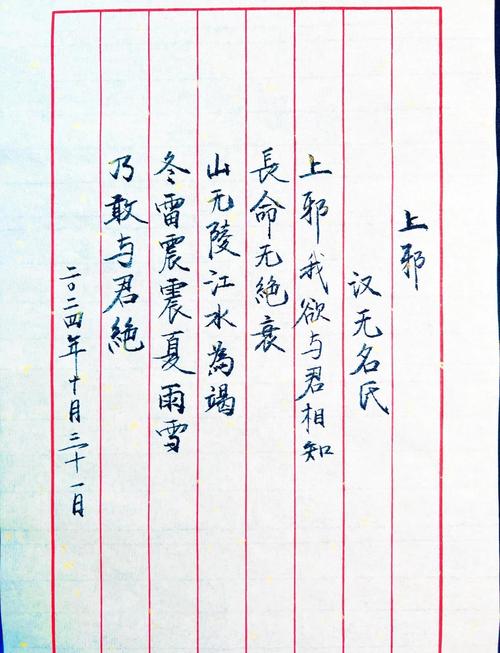 上邪
汉无名氏
上邪我欲与君相知
長命无絶衰
山无陵江水為竭
冬雷震震夏雨雪
乃敢与君絶
二〇二四年十月三十一日